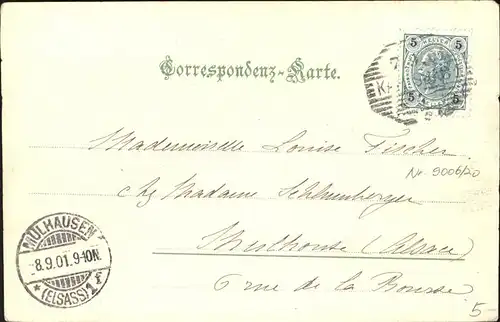 5 5
5 5
Correspondenz-Karte.
Mademoiselle Louise Fischer
Nr. 9006/20
chez Madame Schlumberger
MÜLHAUSEN
8.9.01.9-10N.
*(ELSASS)1f
Mulhouse (Alsace)
6 rue de la Bourse
5-